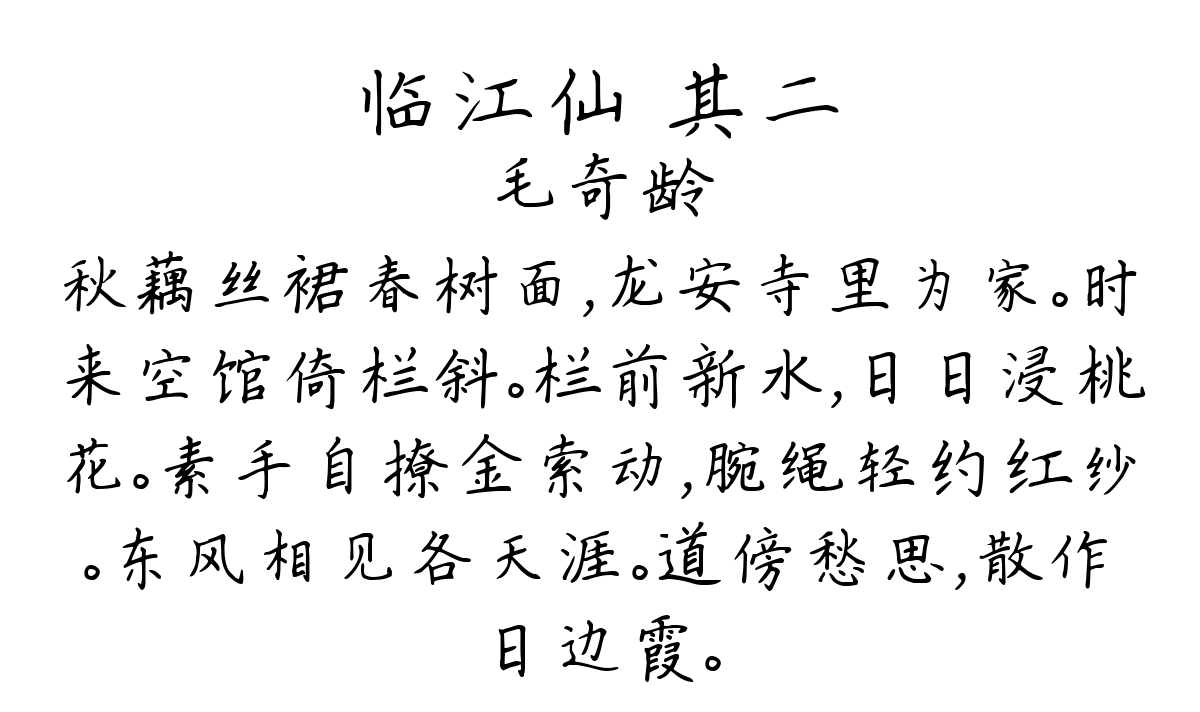 临江仙 其二
毛奇龄
秋藕丝裙春树面,龙安寺里为家。时
来空馆倚栏斜。栏前新水,日日浸桃
花。素手自撩金索动,腕绳轻约红纱
。东风相见各天涯。道傍愁思,散作
日边霞。